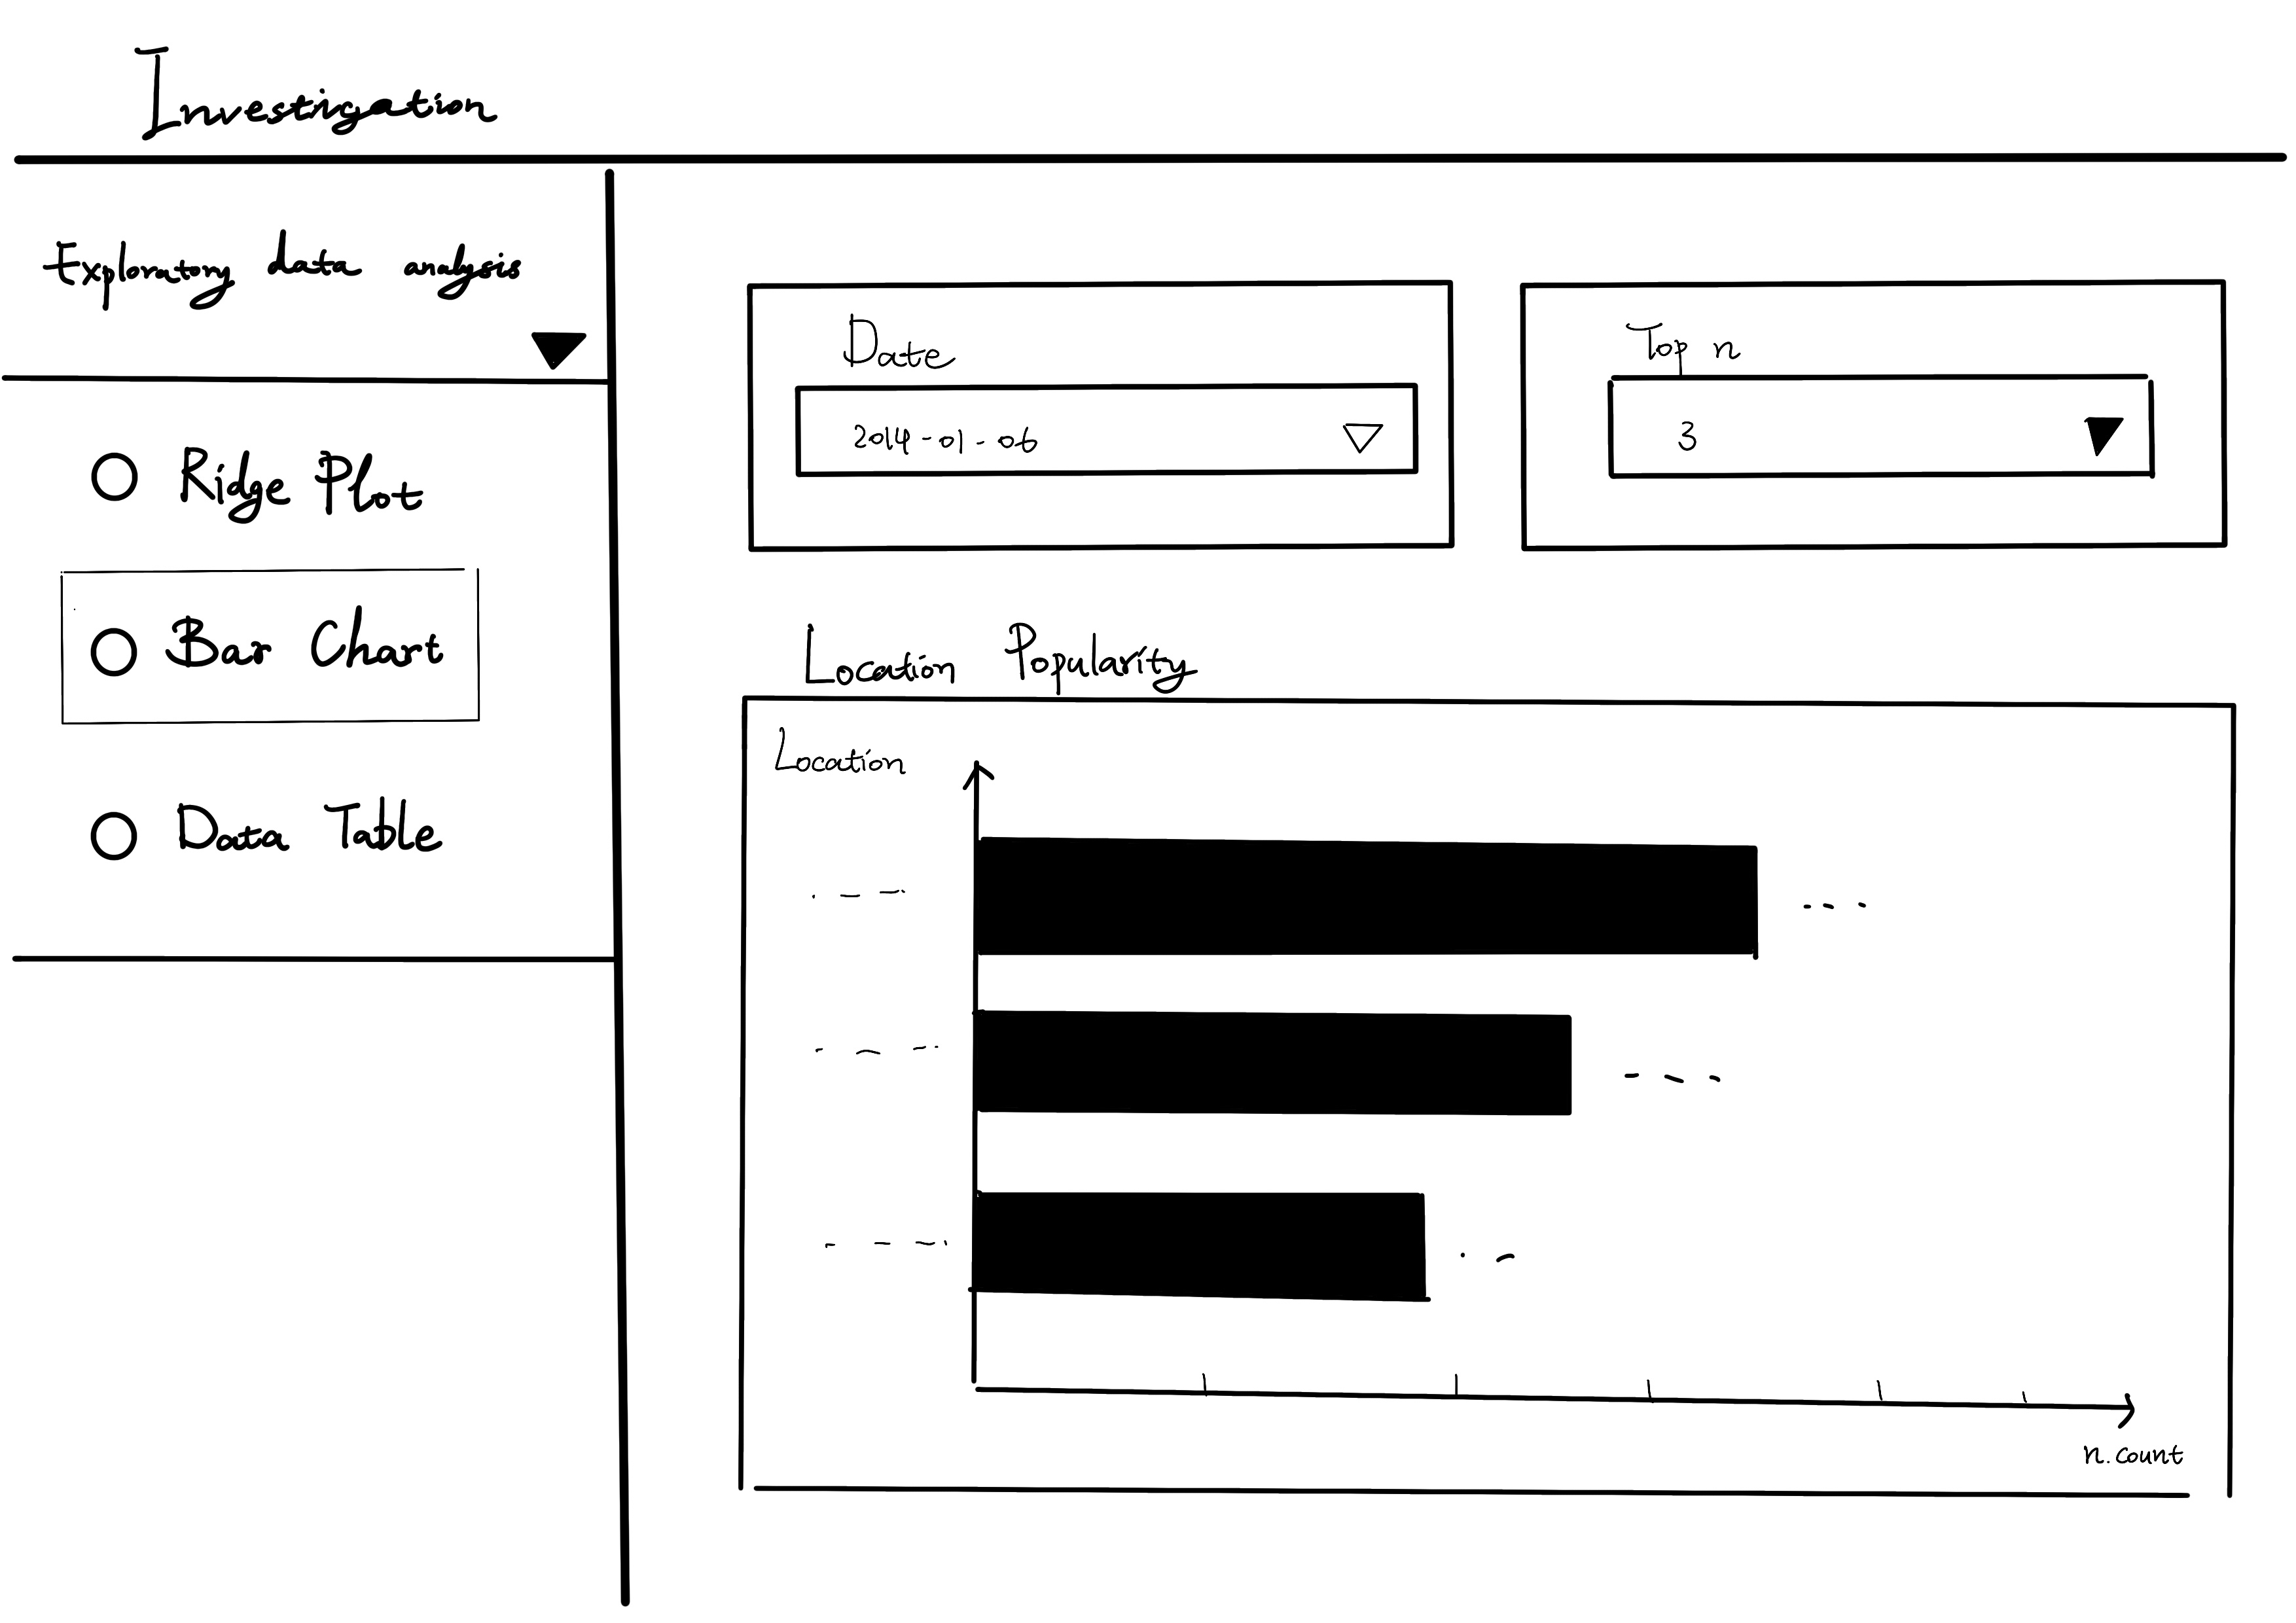 Investigation
Exploratory data analysis
Ridge Plot
Bar Chart
Data Table
Date
2014-01-06
Top n
3
Location Popularity
Location
n.count